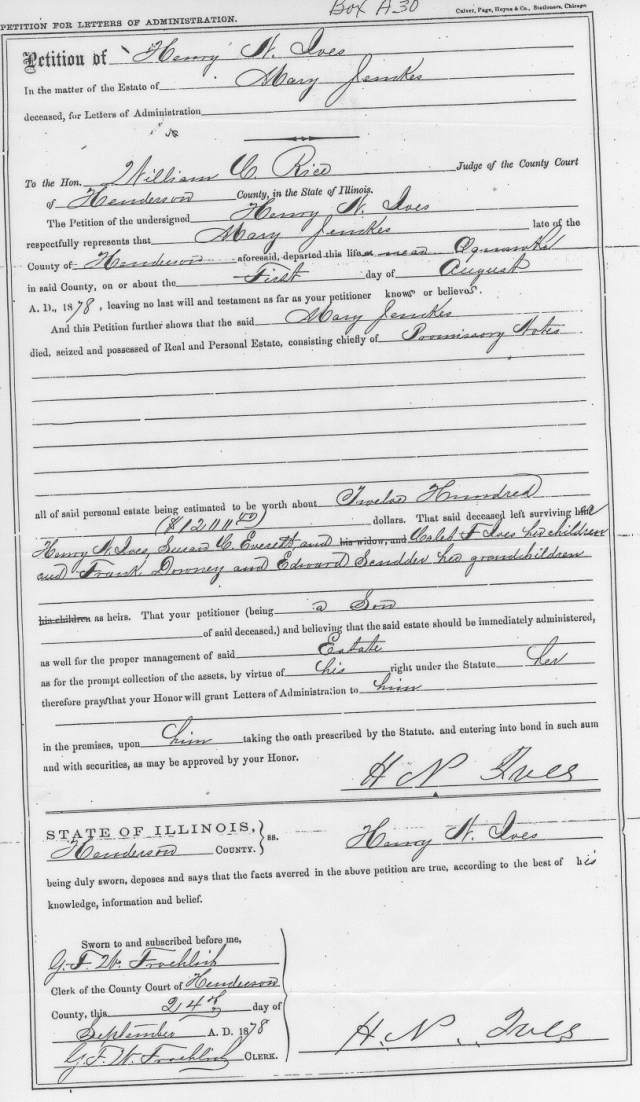 Box A30
PETITION FOR LETTERS OF ADMINISTRATION.
Culver, Page, Hoyne & Co., Stationers, Chicago
Petition of Henry N. Ives
In the matter of the Estate of Mary Jenckes
deceased, for Letters of Administration
To the Hon. William C. Rice Judge of the County Court
of Henderson County, in the State of Illinois.
The Petition of the undersigned Henry N. Ives
respectfully represents that Mary Jenckes late of the
County of Henderson aforesaid, departed this life near Oquawka
in said County, on or about the First day of August
A. D., 1878, leaving no last will and testament as far as your petitioner knows or believes.
And this Petition further shows that the said Mary Jenckes
died, seized and possessed of Real and Personal Estate, consisting chiefly of Promissory Notes
all of said personal estate being estimated to be worth about Twelve Hundred
dollars. That said deceased left surviving her
Henry N. Ives, Susan C. Everett, and his widow, and Caleb F Ives her children
and Frank Downey and Edward Scudder her grandchildren
his children as heirs. That your petitioner (being a Son
of said deceased,) and believing that the said estate should be immediately administered,
as well for the proper management of said Estate
as for the prompt collection of the assets, by virtue of his right under the Statute her
therefore prays that your Honor will grant Letters of Administration to him
in the premises, upon him taking the oath prescribed by the Statute, and entering into bond in such sum
and with securities, as may be approved by your Honor.
H N Ives
STATE OF ILLINOIS,
Henderson COUNTY. ss. Henry N. Ives
being duly sworn, deposes and says that the facts averred in the above petition are true, according to the best of his
knowledge, information and belief.
Sworn to and subscribed before me,
G. F. W. Froehlich
Clerk of the County Court of Henderson
County, this 24th day of
September A. D. 1878
G. F. W. Froehlich CLERK.
H. N. Ives